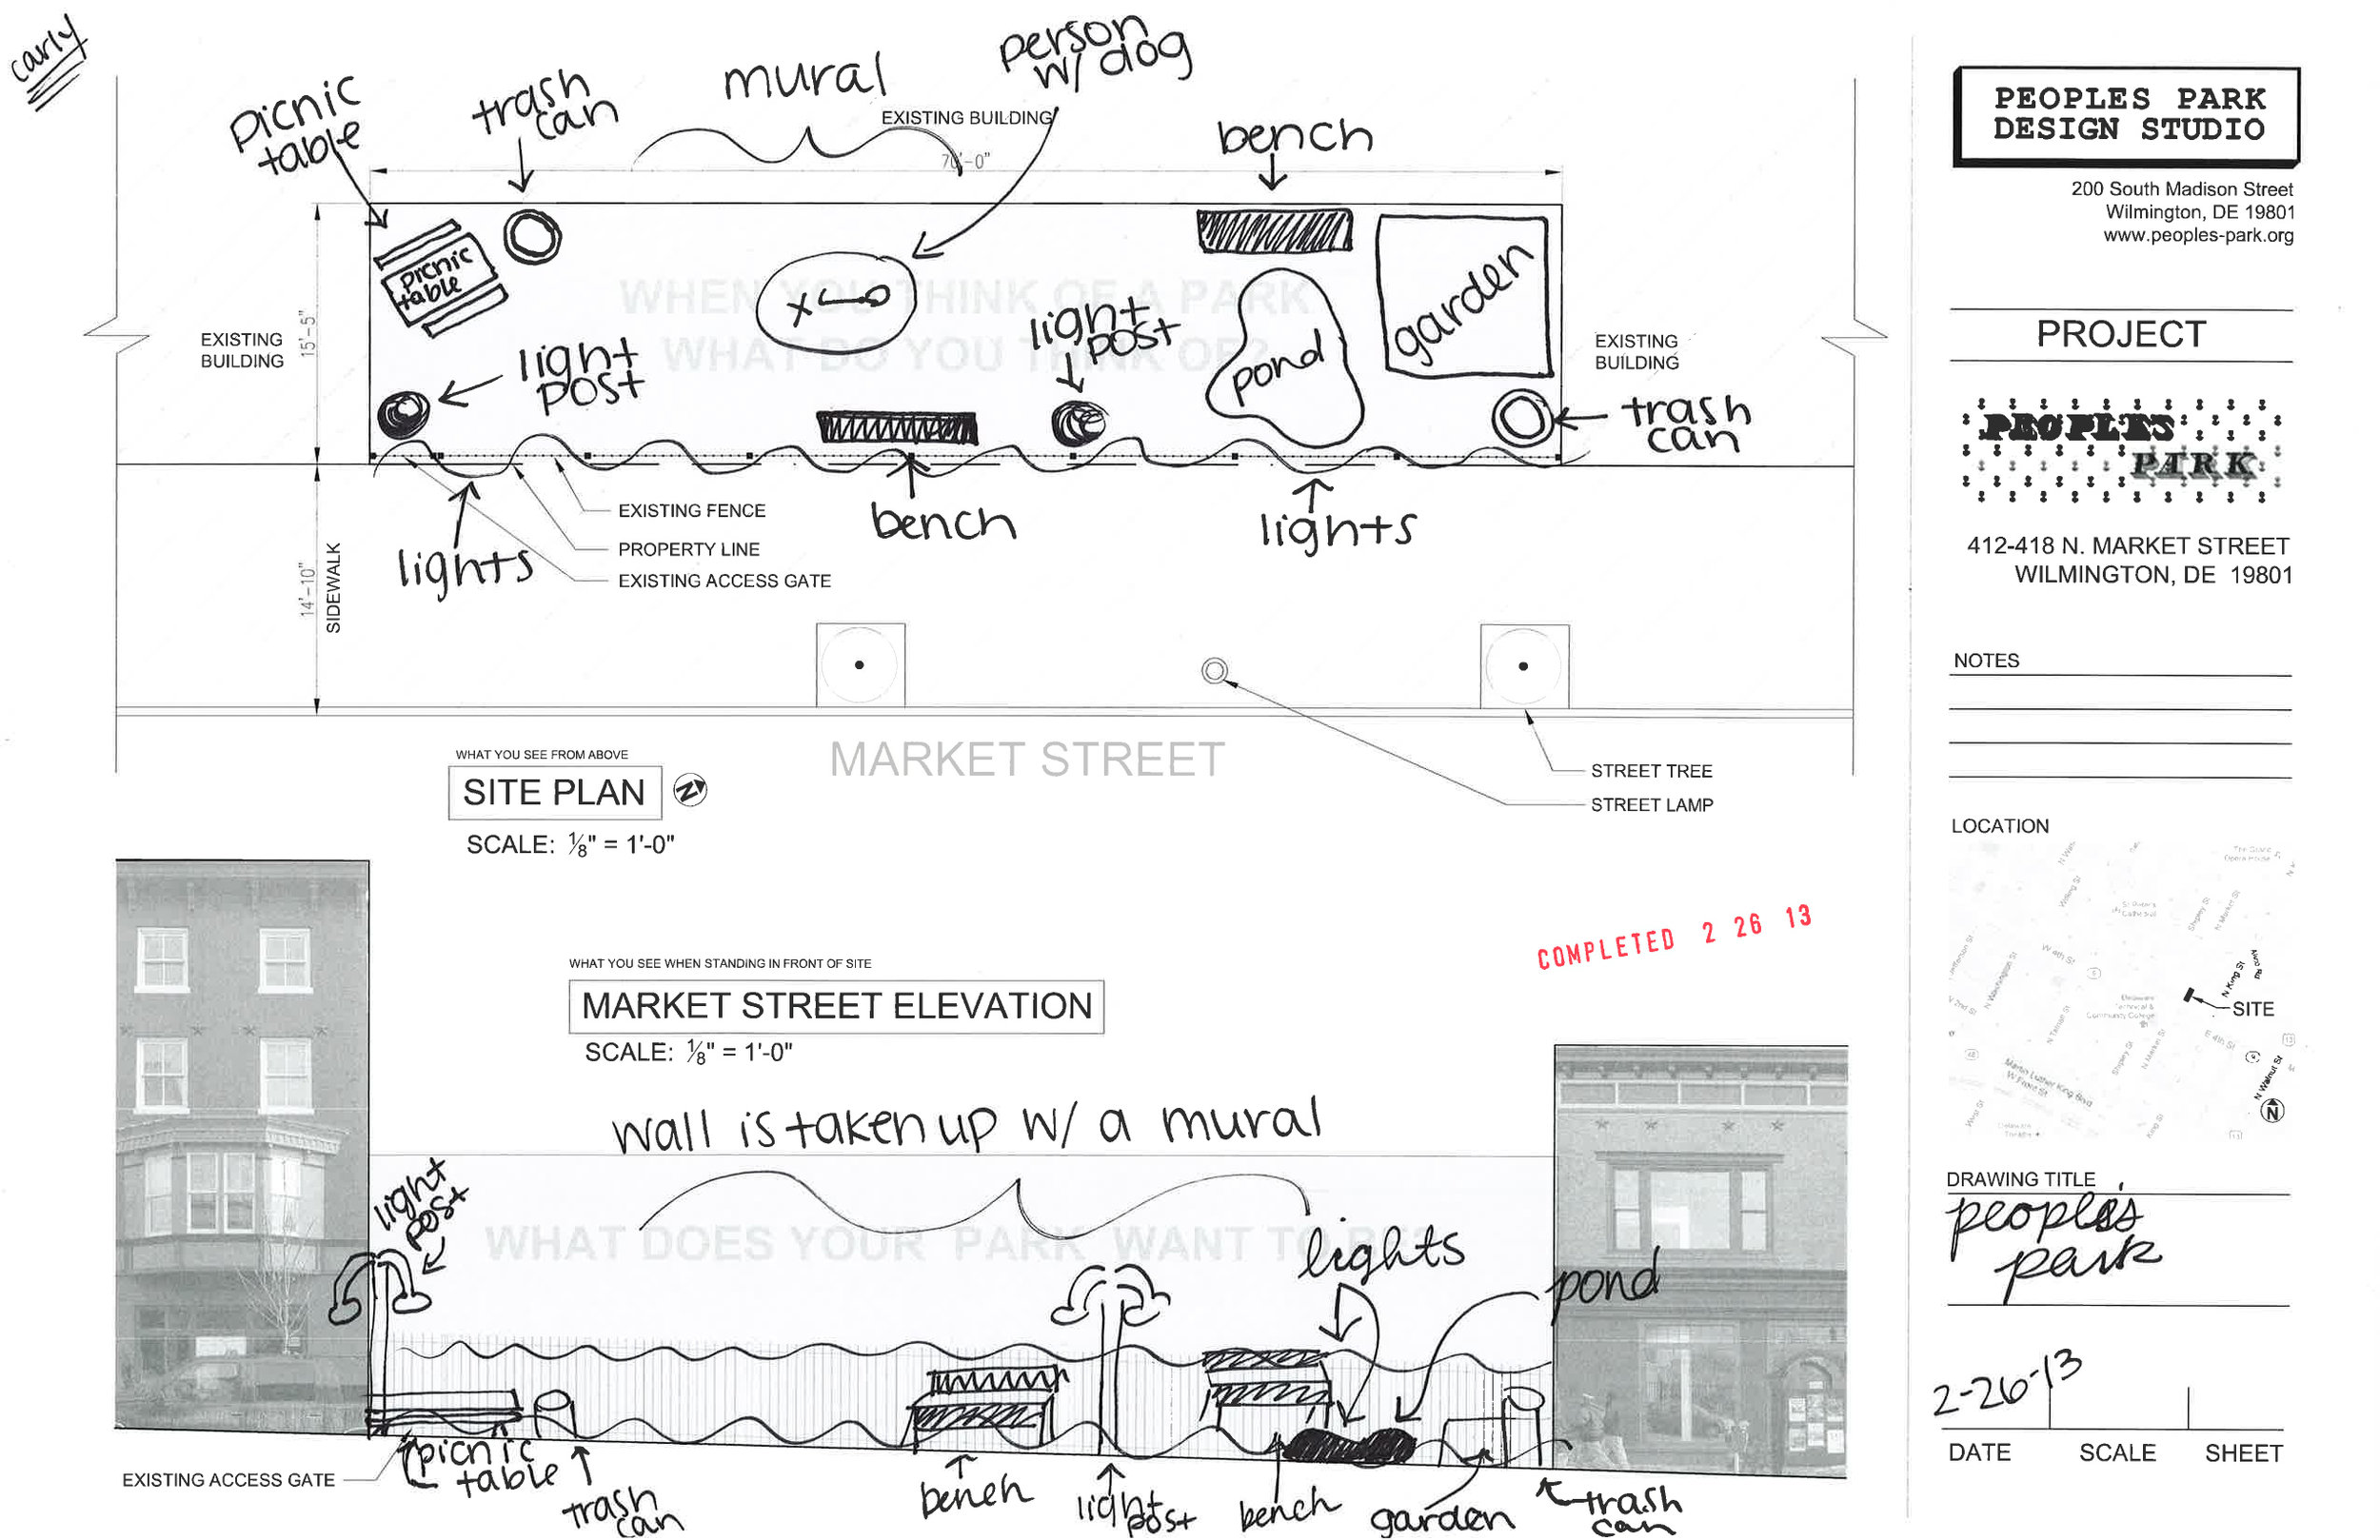 carly
picnic
table
trash
can
mural
person
w/ dog
EXISTING BUILDING
70'-0"
bench
picnic
table
WHEN YOU THINK OF A PARK
WHAT DO YOU THINK OF?
garden
pond
light
post
light
post
EXISTING
BUILDING
15'-5"
EXISTING
BUILDING
trash
can
lights
bench
lights
EXISTING FENCE
PROPERTY LINE
EXISTING ACCESS GATE
14'-10"
SIDEWALK
MARKET STREET
STREET TREE
STREET LAMP
WHAT YOU SEE FROM ABOVE
SITE PLAN
N
SCALE: ⅛" = 1'-0"
COMPLETED 2 26 13
WHAT YOU SEE WHEN STANDING IN FRONT OF SITE
MARKET STREET ELEVATION
SCALE: ⅛" = 1'-0"
wall is taken up w/ a mural
light
post
WHAT DOES YOUR PARK WANT TO
lights
pond
EXISTING ACCESS GATE
picnic
table
trash
can
bench
light
post
bench
garden
trash
can
PEOPLES PARK
DESIGN STUDIO
200 South Madison Street
Wilmington, DE 19801
www.peoples-park.org
PROJECT
PEOPLES
PARK
412-418 N. MARKET STREET
WILMINGTON, DE 19801
NOTES
LOCATION
W 4th St
N King St
SITE
E 4th St
N Market St
Martin Luther King Blvd
W Front St
N Walnut St
N
DRAWING TITLE
people's
park
2-26-13
DATE
SCALE
SHEET